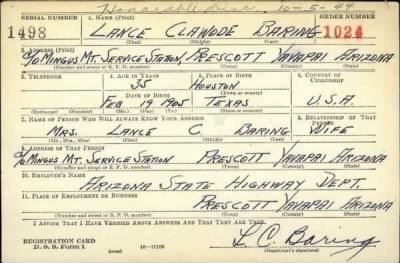 Honorable Disc. 10-5-44
SERIAL NUMBER 1. NAME (Print) ORDER NUMBER
1498 LANCE CLAWODE BARING 1024
(First) (Middle) (Last)
2. ADDRESS (Print)
c/o MINGUS MT. SERVICE STATION, PRESCOTT YAVAPAI ARIZONA
(Number and street or R. F. D. number) (Town) (County) (State)
3. TELEPHONE 4. AGE IN YEARS 5. PLACE OF BIRTH 6. COUNTRY OF CITIZENSHIP
35 HOUSTON
DATE OF BIRTH (Town or county)
FEB 19 1905 TEXAS U.S.A.
(Exchange) (Number) (Mo.) (Day) (Yr.) (State or country)
7. NAME OF PERSON WHO WILL ALWAYS KNOW YOUR ADDRESS 8. RELATIONSHIP OF THAT PERSON
MRS. LANCE C. BARING WIFE
(Mr., Mrs., Miss) (First) (Middle) (Last)
9. ADDRESS OF THAT PERSON
c/o MINGUS MT. SERVICE STATION PRESCOTT YAVAPAI ARIZONA
(Number and street or R. F. D. number) (Town) (County) (State)
10. EMPLOYER'S NAME
ARIZONA STATE HIGHWAY DEPT.
11. PLACE OF EMPLOYMENT OR BUSINESS
PRESCOTT YAVAPAI ARIZONA
(Number and street or R. F. D. number) (Town) (County) (State)
I AFFIRM THAT I HAVE VERIFIED ABOVE ANSWERS AND THAT THEY ARE TRUE.
REGISTRATION CARD
D. S. S. Form 1 (over) 16-17105 L. C. Baring
(Registrant's signature)